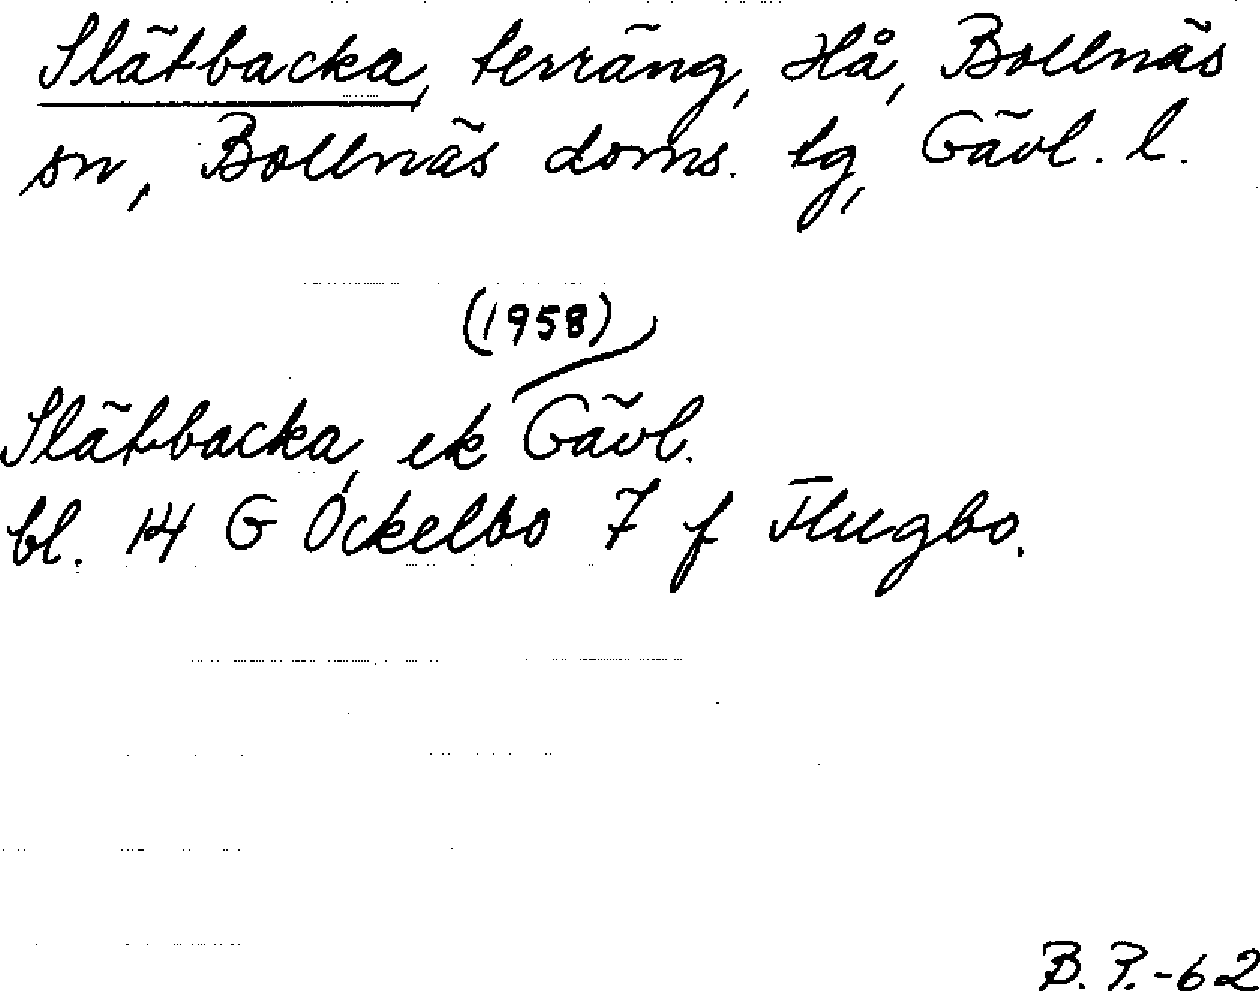 Slätbacka, terräng, Hå, Bollnäs
sn, Bollnäs doms. tg, Gävl. l.
(1958)
Slätbacka, ek Gävl.
bl. 14 G Ockelbo 7 f Flugbo.
B. P.-62